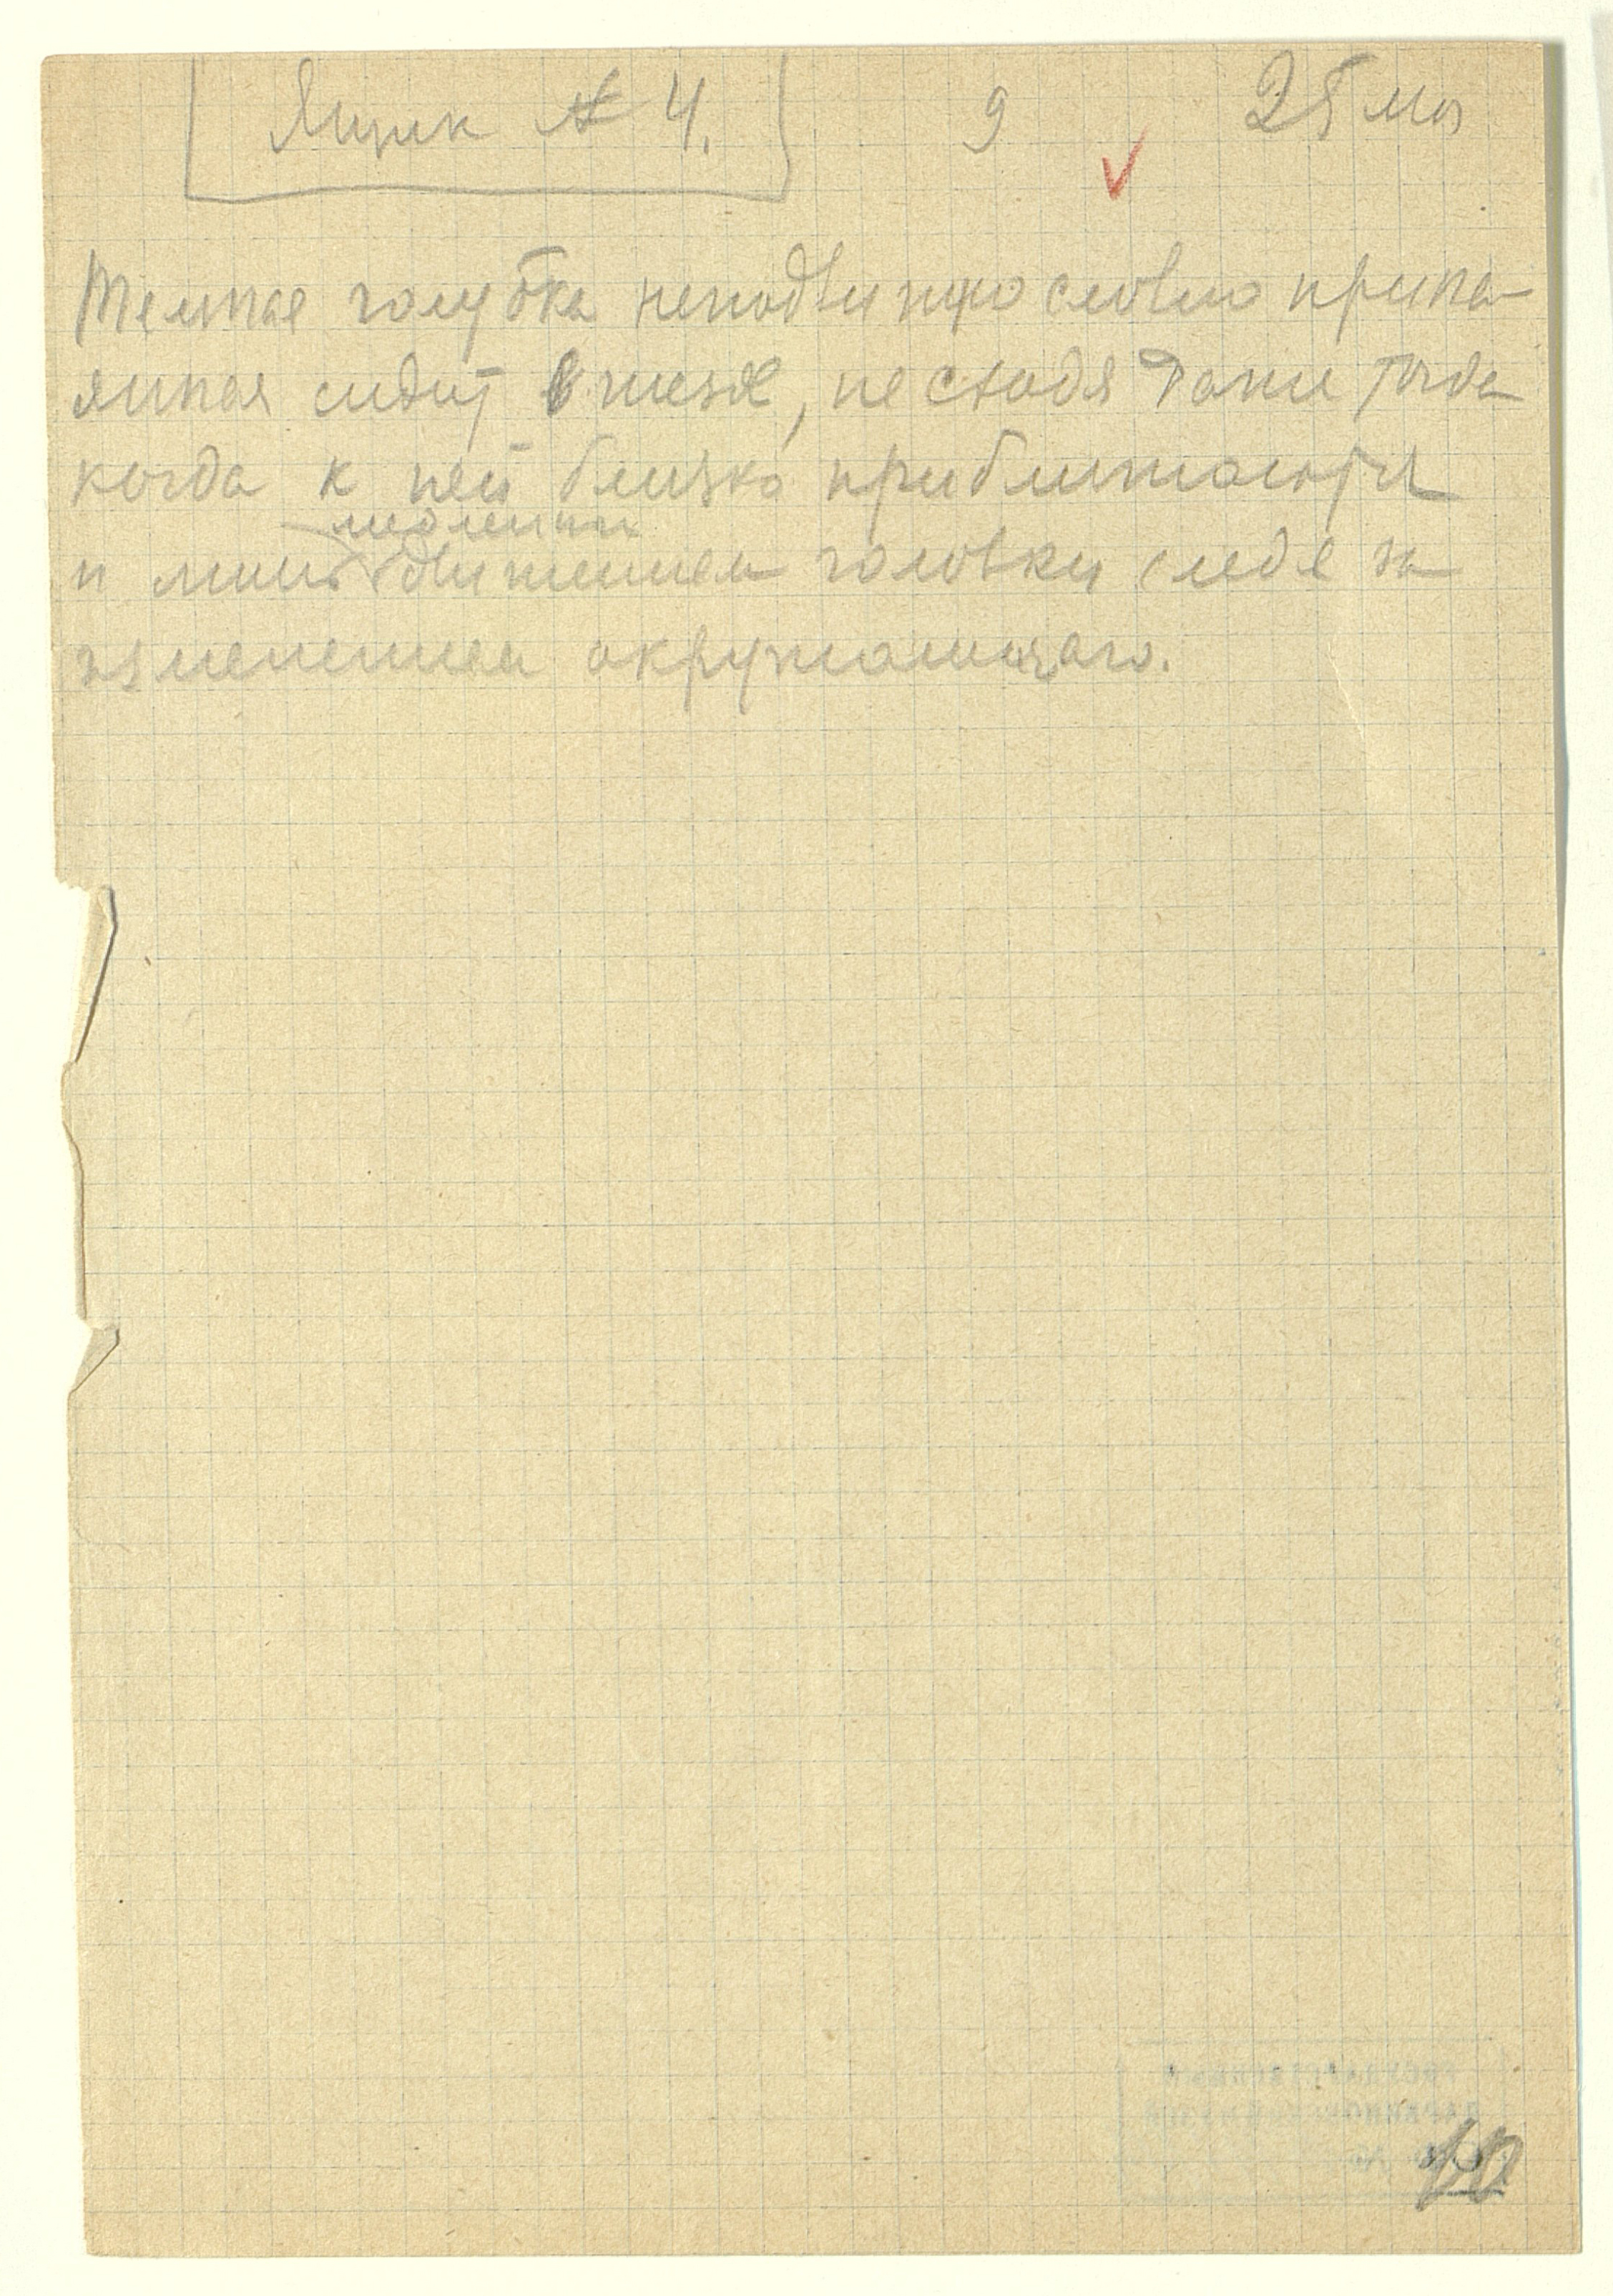 Ящик № 4. 9 25 мая
Темная голубка неподвижно словно припа-
янная сидит в гнезде, не сходя даже тогда
когда к ней близко приближаются
медленным
и лишь движением головки следя за
изменением окружающего.
10